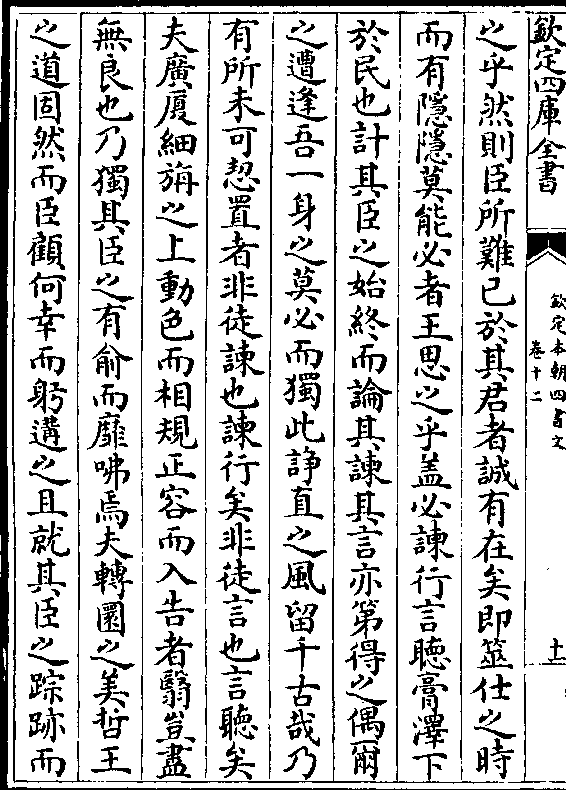 欽定四庫全書
欽定本朝四書文
卷十二
十一
之乎然則臣所難已於其君者誠有在矣即筮仕之時
而有隱隱莫能必者王思之乎盖必諫行言聽膏澤下
於民也計其臣之始終而論其諫其言亦第得之偶爾
之遭逢吾一身之莫必而獨此諍直之風留千古哉乃
有所未可恝置者非徒諫也諫行矣非徒言也言聽矣
夫廣厦細旃之上動色而相規正容而入告者翳豈盡
無良也乃獨其臣之有俞而靡咈焉夫轉圜之美哲王
之道固然而臣顧何幸而躬遘之且就其臣之踪跡而